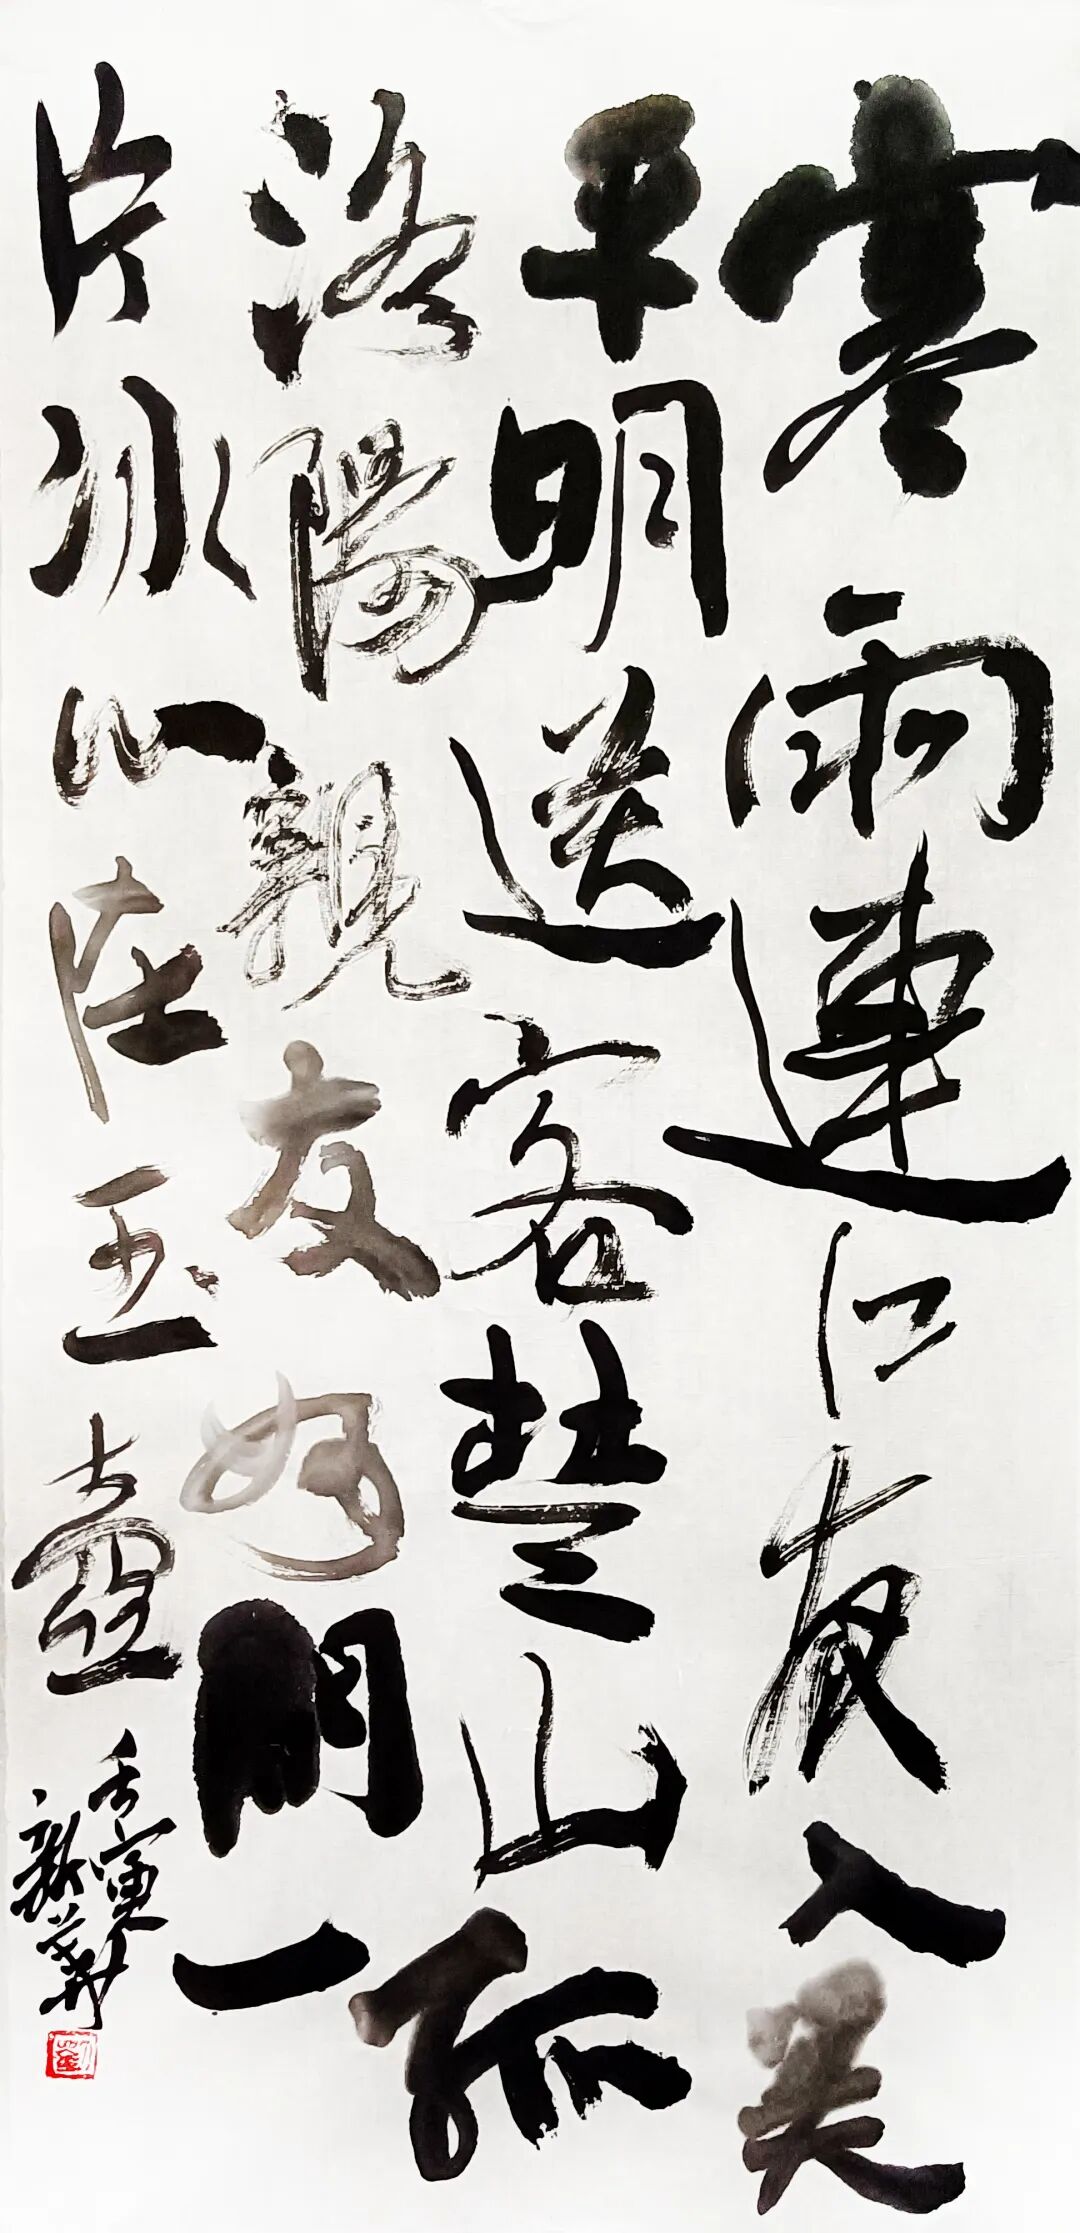 寒雨連江夜入吴
平明送客楚山孤
洛陽親友如問一
片冰心在玉壺
壬寅
新華